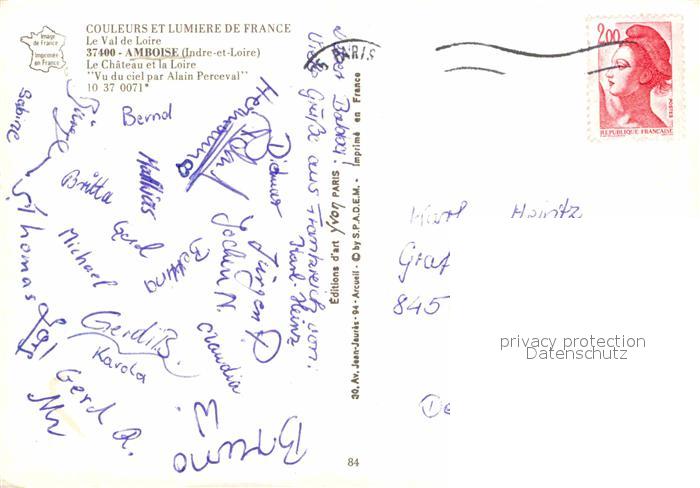 Image
de France
Imprimée
en France
COULEURS ET LUMIERE DE FRANCE
Le Val de Loire
37400 - AMBOISE (Indre-et-Loire)
Le Château et la Loire
"Vu du ciel par Alain Perceval"
10 37 0071*
Viele Grüße aus Frankreich von:
Karl-Heinz
Sabine
Bernd
Mathias
Britta
Gerd
Michael
Thomas
Dietmar
Jürgen P.
Jochen N.
Bettina
Claudia
Gerdi B.
Karola
Gerd R.
Bruno
Éditions d'art yvon PARIS
30, Av. Jean-Jaurès - 94 - Arcueil - © by S.P.A.D.E.M. - Imprimé en France
84
PARIS
2,00
POSTES
REPUBLIQUE FRANÇAISE
Karl Heintz
Graf
845
privacy protection
Datenschutz